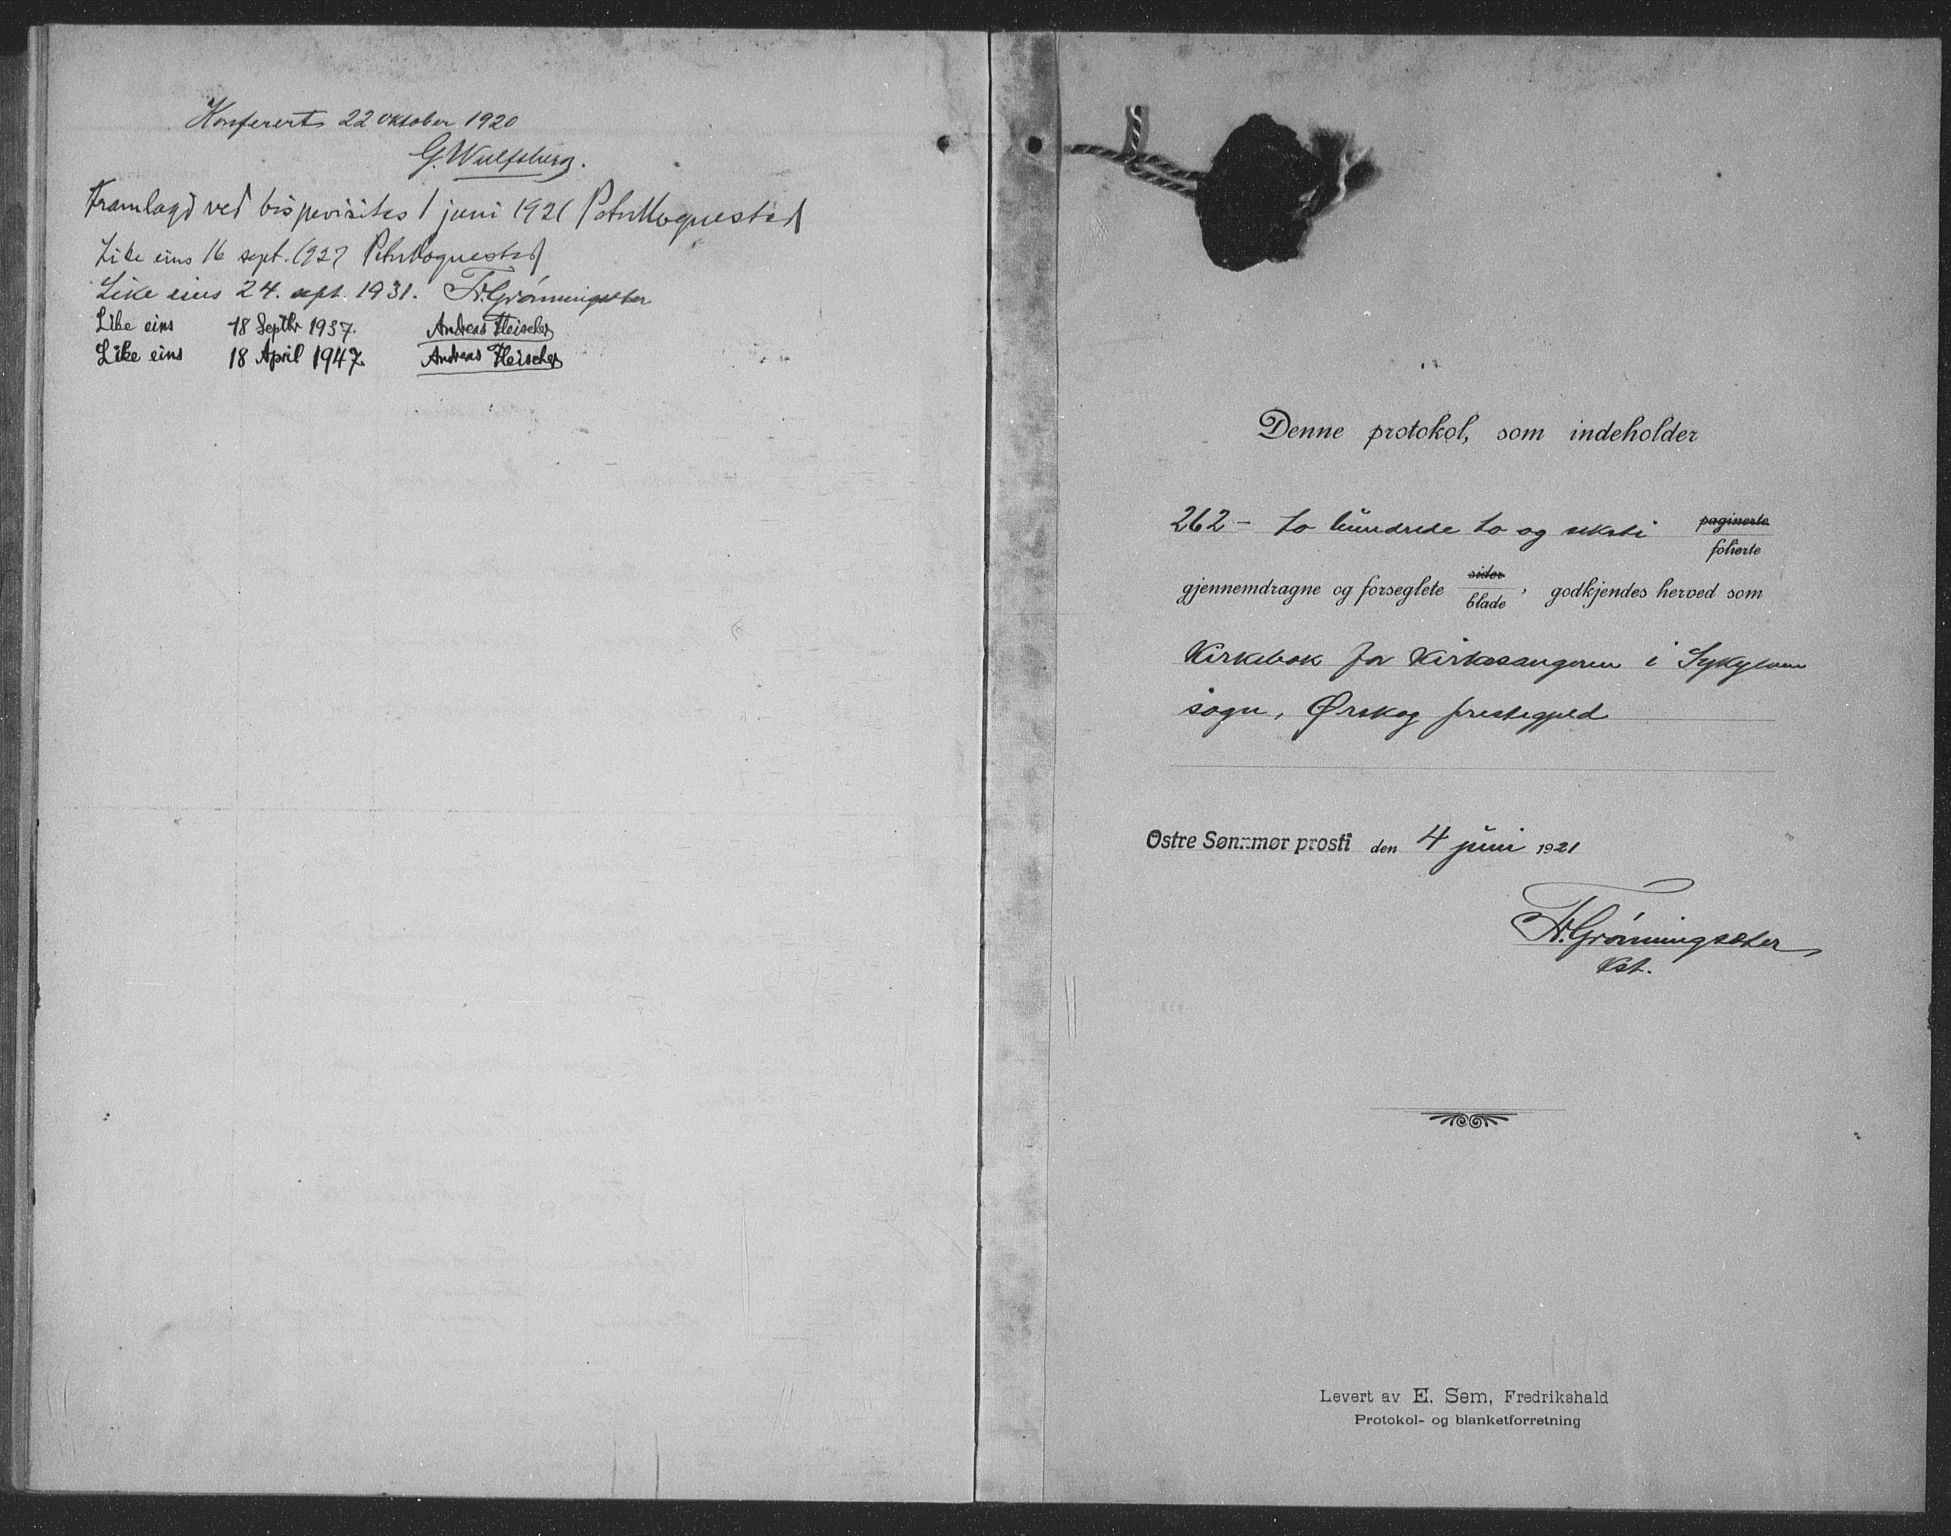 Konferert 22 oktober 1920
G. Wulfsberg.
Framlagd ved bispevisitas 1 juni 1921 Peter Hognestad
Like eins 16 sept. 1927 Peter Hognestad
Like eins 24. sept. 1931. Fr. Grönningsæter
Like eins 18 Septbr 1937. Andreas Fleischer
Like eins 18 April 1947. Andreas Fleischer
Denne protokol, som indeholder
262 - to hundrede to og seksti paginerte
folierte
gjennemdragne og forseglete sider
blade, godkjendes herved som
Kirkebok for Kirkesangeren i Sykylven
sogn, Ørskog prestegjeld
Ostre Sønnmør prosti den 4 juni 1921
Fr. Grönningsæter,
Kst.
Levert av E. Sem, Fredrikshald
Protokol- og blanketforretning